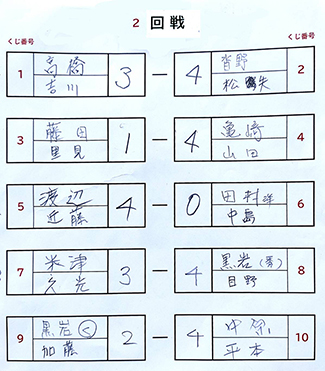 2 回戦
くじ番号 くじ番号
1 高橋 3 ー 4 2
吉川 松
3 藤田 1 ー 4 亀崎 4
里見 山田
5 渡辺 4 ー 0 田村 6
近藤 中島
7 米津 3 ー 4 黒岩 8
久光 日野
9 黒岩 2 ー 4 中原 10
加藤 平本